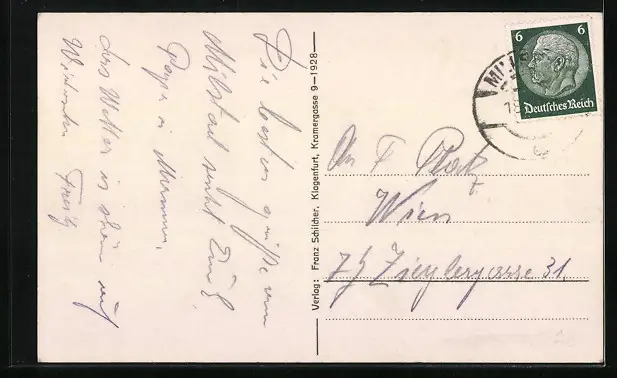 Die besten Grüße vom
Millstatt sendet Euch
Papa u Mama.
das Wetter is schön auf
Wiedersehen Fritz
Verlag: Franz Schilcher, Klagenfurt, Kramergasse 9-1928
6 6
Deutsches Reich
MILLS
An F Platz
Wien
Zieglergasse 31.